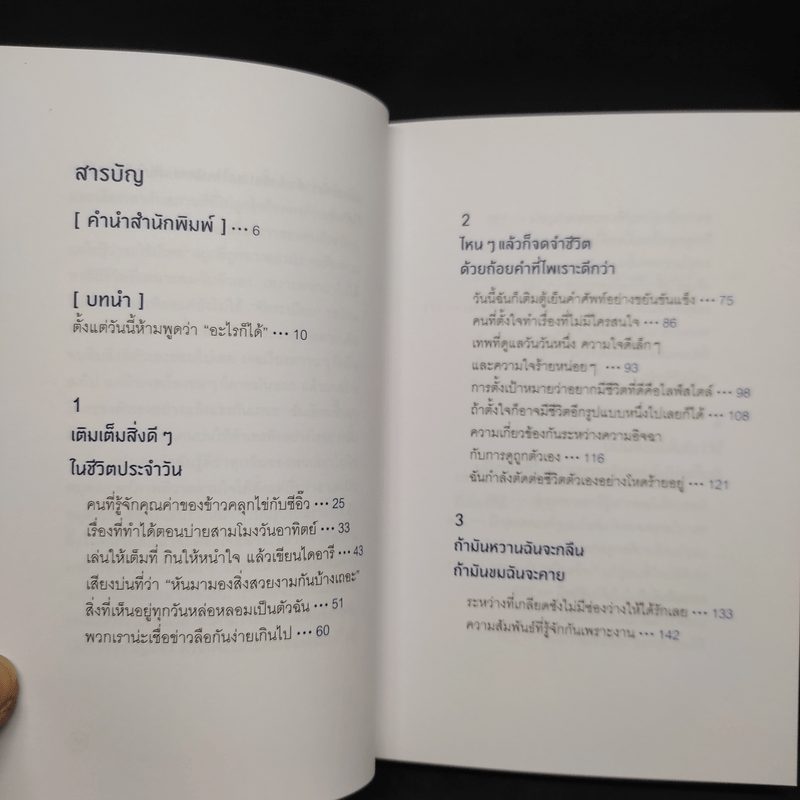 สารบัญ
[ คำนำสำนักพิมพ์ ] ... 6
[ บทนำ ]
ตั้งแต่วันนี้ห้ามพูดว่า “อะไรก็ได้” ... 10
1
เติมเต็มสิ่งดี ๆ
ในชีวิตประจำวัน
คนที่รู้จักคุณค่าของข้าวคลุกไข่กับซีอิ๊ว ... 25
เรื่องที่ทำได้ตอนบ่ายสามโมงวันอาทิตย์ ... 33
เล่นให้เต็มที่ กินให้หนำใจ แล้วเขียนไดอารี่ ... 43
เสียงบ่นที่ว่า “หันมามองสิ่งสวยงามกันบ้างเถอะ”
สิ่งที่เห็นอยู่ทุกวันหล่อหลอมเป็นตัวฉัน ... 51
พวกเราน่ะเชื่อข่าวลือกันง่ายเกินไป ... 60
2
ไหน ๆ แล้วก็จดจำชีวิต
ด้วยถ้อยคำที่ไพเราะดีกว่า
วันนี้ฉันก็เติมตู้เย็นคำศัพท์อย่างขยันขันแข็ง ... 75
คนที่ตั้งใจทำเรื่องที่ไม่มีใครสนใจ ... 86
เทพที่ดูแลวันวันหนึ่ง ความใจดีเล็กๆ
และความใจร้ายหน่อยๆ ... 93
การตั้งเป้าหมายว่าอยากมีชีวิตที่ดีคือไลฟ์สไตล์ ... 98
ถ้าตั้งใจก็อาจมีชีวิตอีกรูปแบบหนึ่งไปเลยก็ได้ ... 108
ความเกี่ยวข้องกันระหว่างความอิจฉา
กับการดูถูกตัวเอง ... 116
ฉันกำลังตัดต่อชีวิตตัวเองอย่างโหดร้ายอยู่ ... 121
3
ถ้ามันหวานฉันจะกลืน
ถ้ามันขมฉันจะคาย
ระหว่างที่เกลียดชังไม่มีช่องว่างให้ได้รักเลย ... 133
ความสัมพันธ์ที่รู้จักกันเพราะงาน ... 142